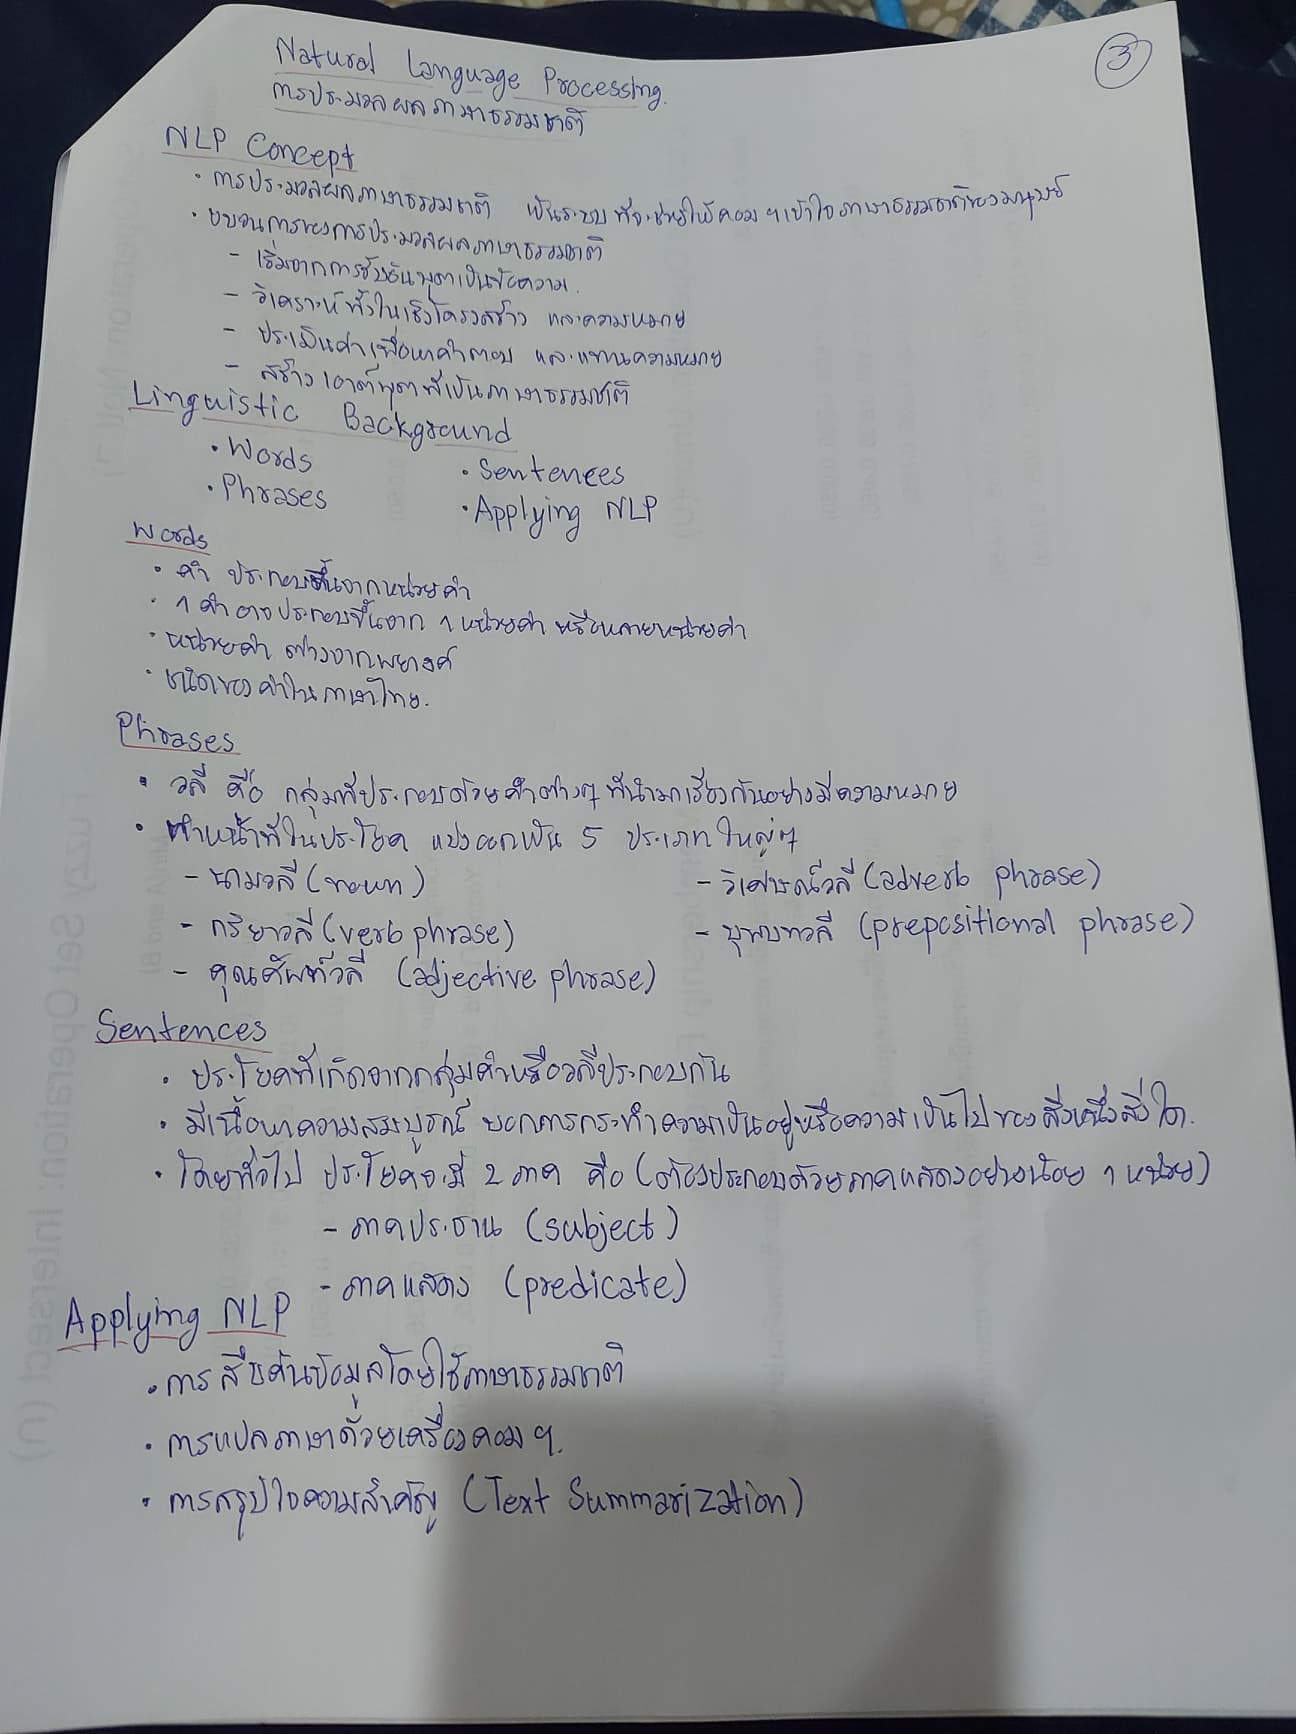 3
Natural Language Processing.
การประมวลผลภาษาธรรมชาติ
NLP Concept
• การประมวลผลภาษาธรรมชาติ เป็นระบบที่จะช่วยให้คอมฯเข้าใจภาษาธรรมชาติของมนุษย์
• ขบวนการของการประมวลผลภาษาธรรมชาติ
- เริ่มจากการรับอินพุตเป็นข้อความ.
- วิเคราะห์ทั้งในเชิงโครงสร้าง และความหมาย
- ประเมินค่าเพื่อหาคำตอบ และแทนความหมาย
- สร้างเอาต์พุตที่เป็นภาษาธรรมชาติ
Linguistic Background
• Words • Sentences
• Phrases • Applying NLP
Words
• คำ ประกอบขึ้นจากหน่วยคำ
• 1 คำอาจประกอบขึ้นจาก 1 หน่วยคำ หรือหลายหน่วยคำ
• หน่วยคำ ต่างจากพยางค์
• ชนิดของคำในภาษาไทย.
Phrases
• วลี คือ กลุ่มที่ประกอบด้วยคำต่างๆ ที่นำมาเรียงกันอย่างมีความหมาย
• ทำหน้าที่ในประโยค แบ่งออกเป็น 5 ประเภทใหญ่ๆ
- นามวลี (noun) - วิเศษณ์วลี (adverb phrase)
- กริยาวลี (verb phrase) - บุพบทวลี (prepositional phrase)
- คุณศัพท์วลี (adjective phrase)
Sentences
• ประโยคที่เกิดจากกลุ่มคำหรือวลีประกอบกัน
• มีเนื้อหาความสมบูรณ์ บอกการกระทำความเป็นอยู่หรือความเป็นไปของสิ่งหนึ่งสิ่งใด.
• โดยทั่วไป ประโยคจะมี 2 ภาค คือ (ต้องประกอบด้วยภาคแสดงอย่างน้อย 1 หน่วย)
- ภาคประธาน (subject)
- ภาคแสดง (predicate)
Applying NLP
• การสืบค้นข้อมูลโดยใช้ภาษาธรรมชาติ
• การแปลภาษาด้วยเครื่องคอมฯ.
• การสรุปใจความสำคัญ (Text Summarization)